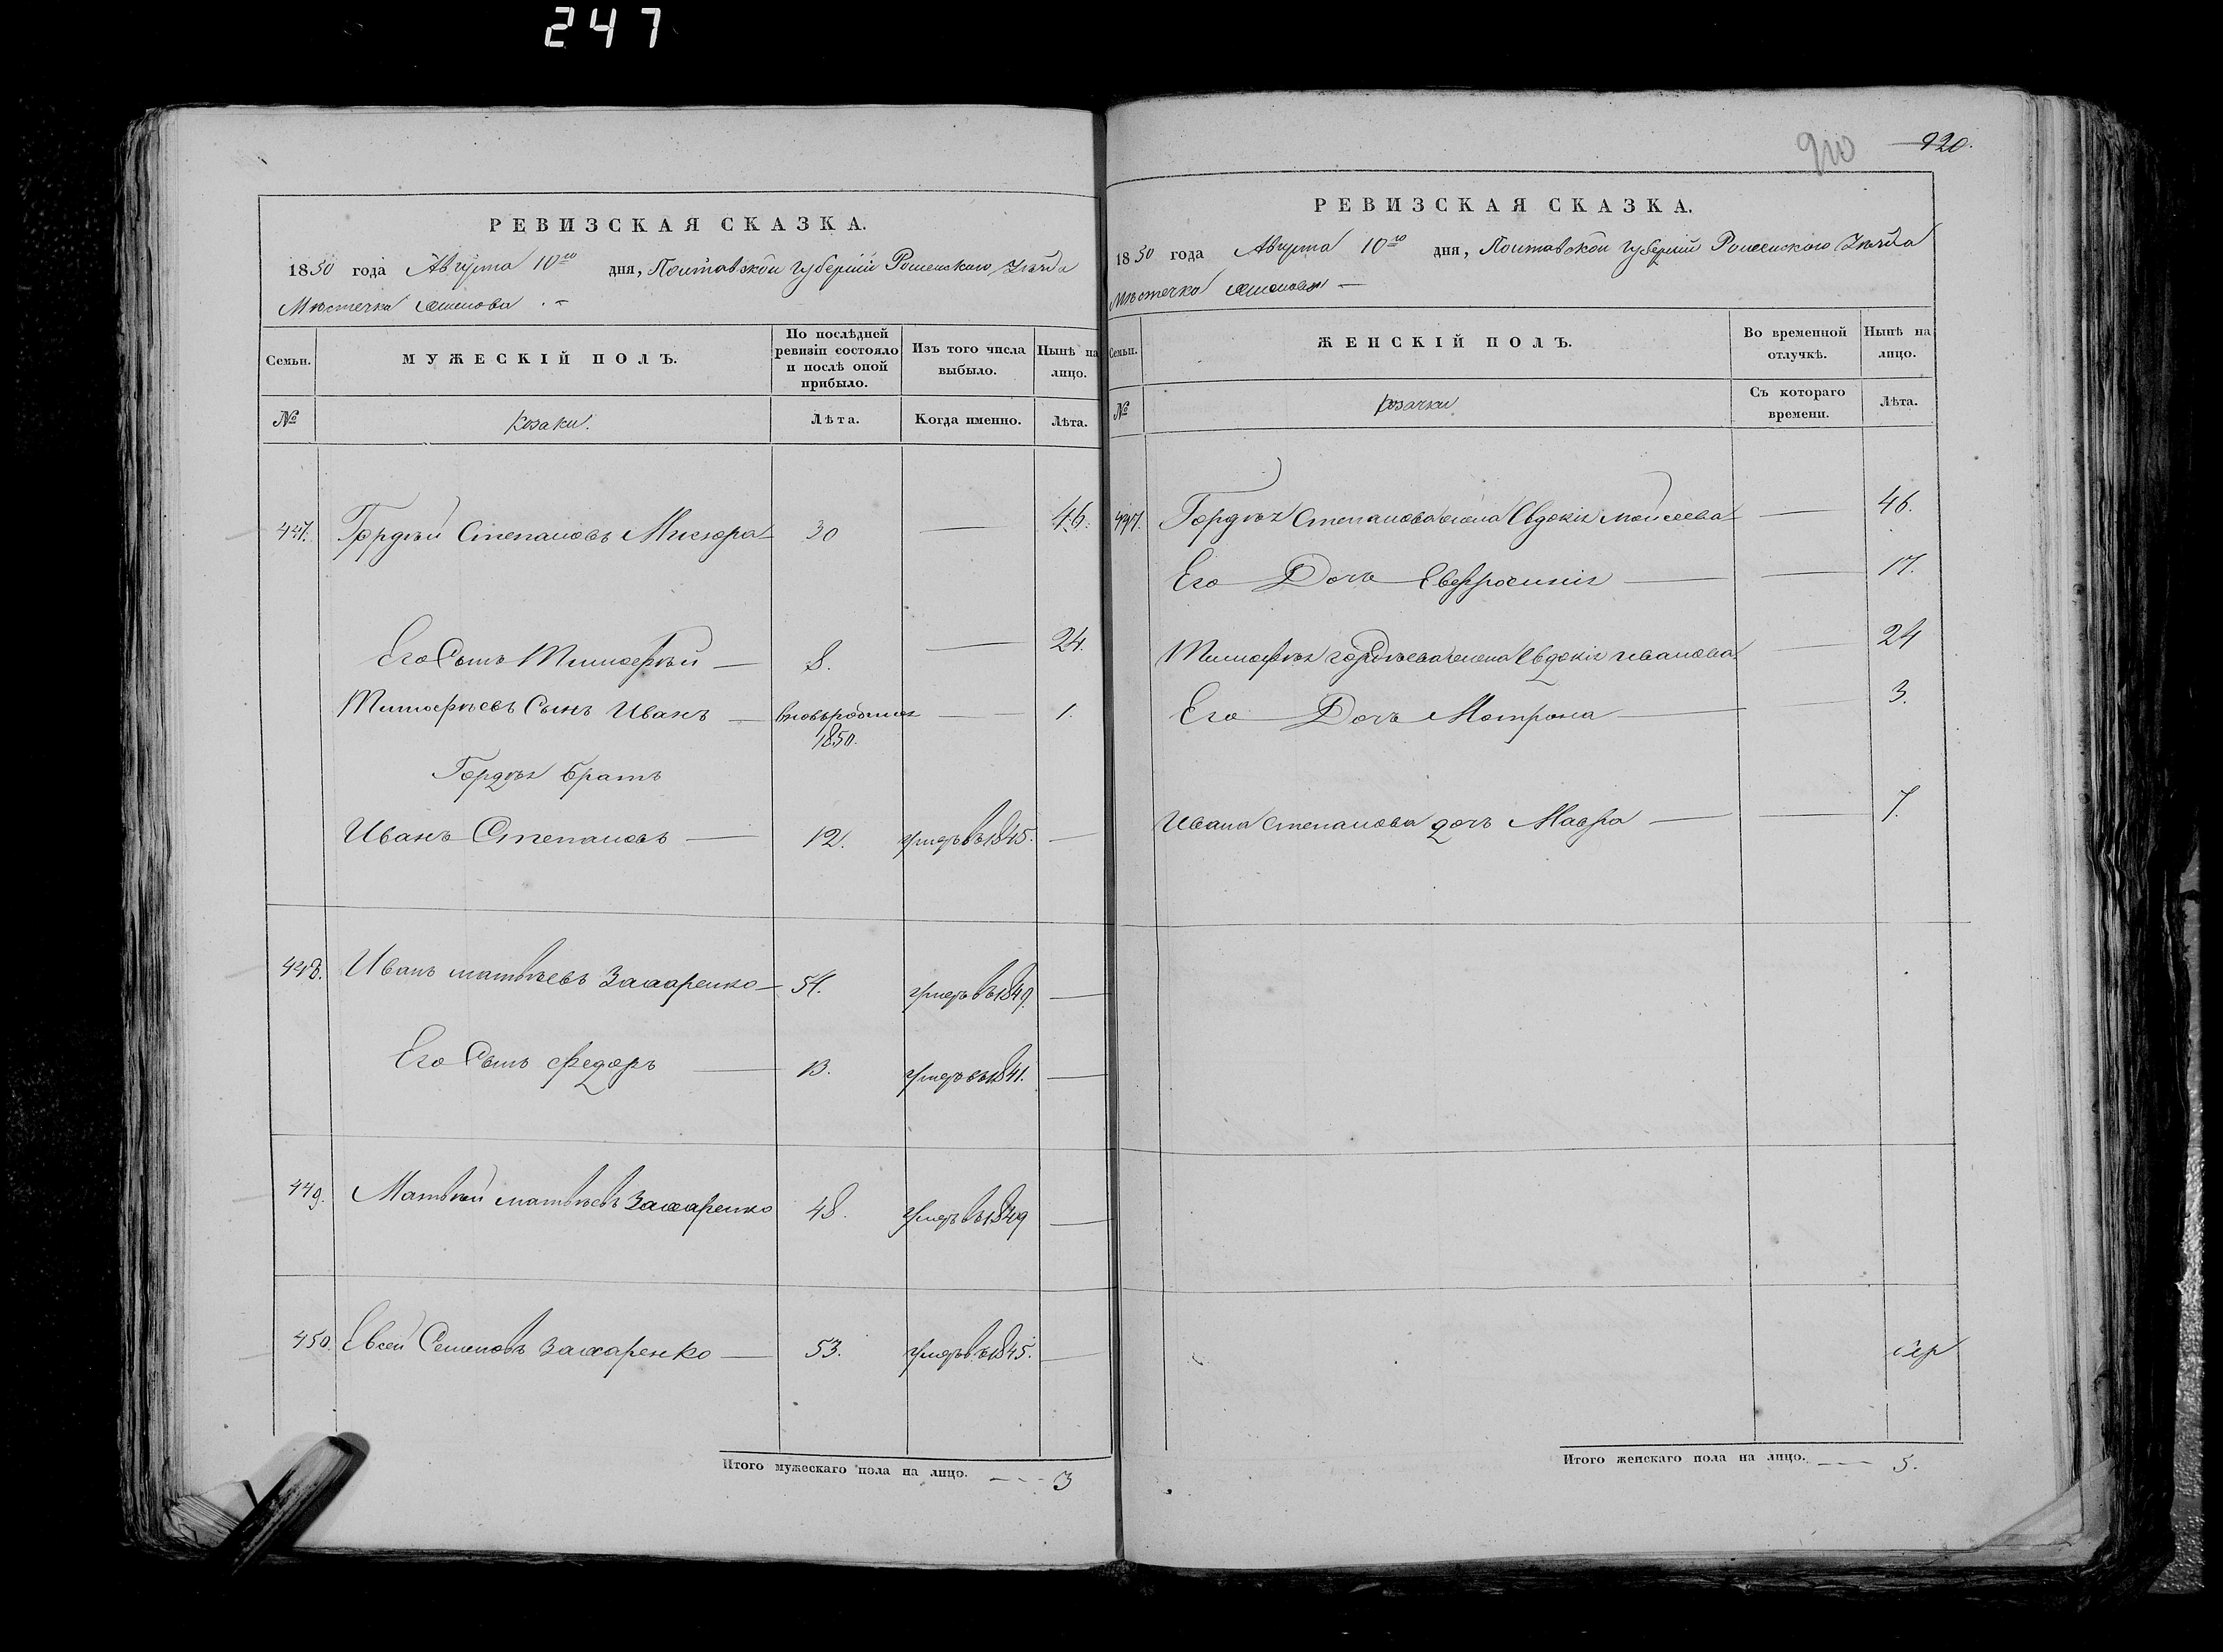 247
910 920.
РЕВИЗСКАЯ СКАЗКА.
1850 года Августа 10го дня, Полтавской губерніи Роменского Уѣзда
Мѣстечка Смелова
Семьи.
МУЖЕСКІЙ ПОЛЪ.
По послѣдней ревизіи состояло и послѣ оной прибыло.
Изъ того числа выбыло.
Нынѣ на лицо.
№
Козаки.
Лѣта.
Когда именно.
Лѣта.
447. Гордѣй Степановъ Мисюра 30 — 46.
Его Сынъ Тимофѣй — 8. — 24.
Тимофѣевъ Сынъ Иванъ — вновьрожден 1850. — 1.
Гордѣя братъ
Иванъ Степановъ — 12. умеръ въ 1845. —
448. Иванъ матвѣевъ Захаренко — 54. умеръ въ 1849. —
Его Сынъ Федоръ — 13. умеръ въ 1841. —
449. Матвѣй матвѣевъ Захаренко 48. умеръ въ 1849 —
450. Евсей Семеновъ Захаренко — 53. умеръ въ 1845. —
Итого мужескаго пола на лицо. 3
РЕВИЗСКАЯ СКАЗКА.
1850 года Августа 10го дня, Полтавской губерніи Роменского Уѣзда
Мѣстечка Смелова —
Семьи.
ЖЕНСКІЙ ПОЛЪ.
Во временной отлучкѣ.
Нынѣ на лицо.
№
Козачки
Съ котораго времени.
Лѣта.
447. Гордѣя Степанова жена Евдокія Мойсеева — 46.
Его Дочь Евфросинія — — 17.
Тимофѣя гордѣева жена Евдокія иванова — 24
Его Дочь Мотрона — — 3.
Ивана Степанова дочь Мавра — — 7.
Итого женскаго пола на лицо. 5.